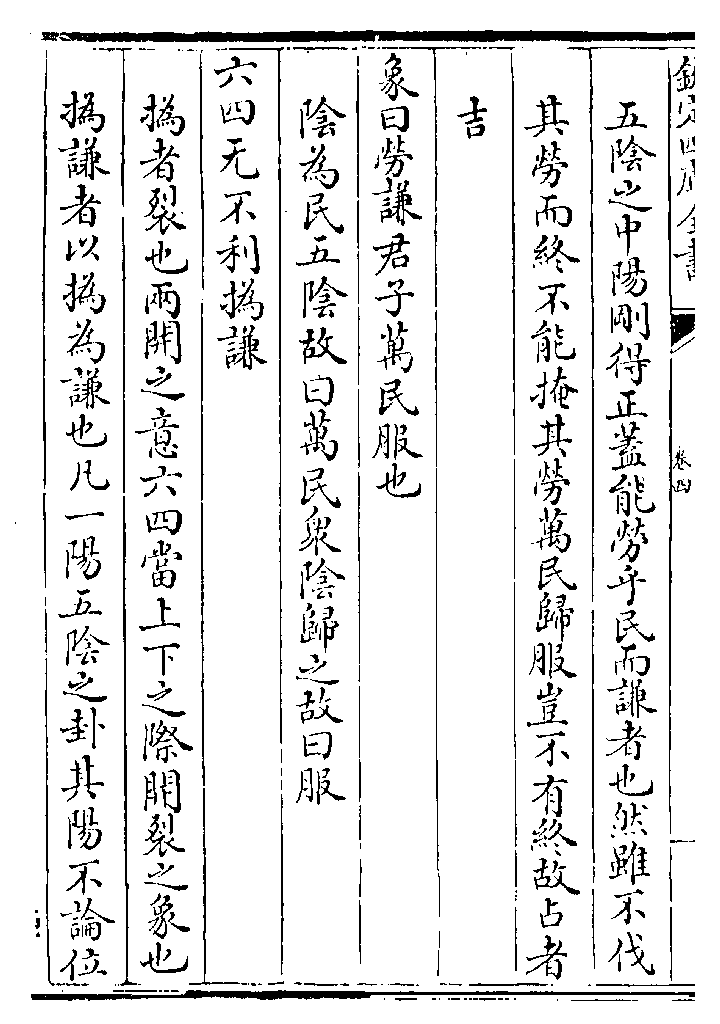 欽定四庫全書
卷四
五陰之中陽剛得正蓋能勞乎民而謙者也然雖不伐
其勞而終不能掩其勞萬民歸服豈不有終故占者
吉
象曰勞謙君子萬民服也
陰為民五陰故曰萬民衆陰歸之故曰服
六四无不利撝謙
撝者裂也兩開之意六四當上下之際開裂之象也
撝謙者以撝為謙也凡一陽五陰之卦其陽不論位